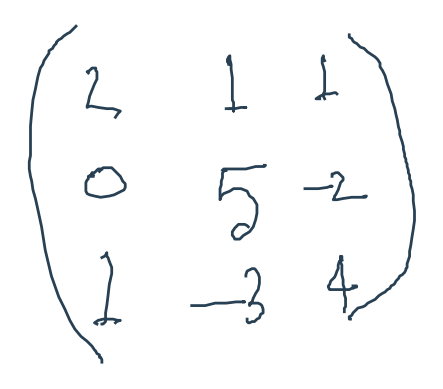 2 1 1
0 5 -2
1 -3 4